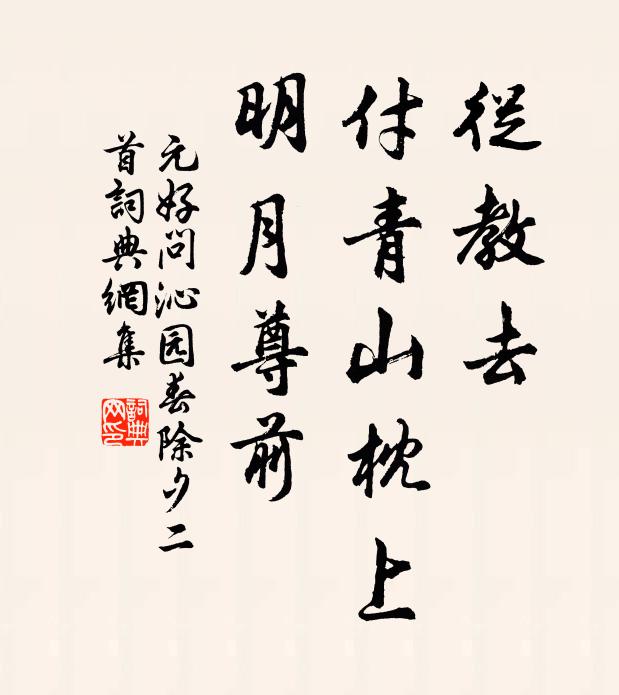 從教去
付青山枕上
明月尊前
元好问沁园春除夕二
首詞典網集
詞典
网印